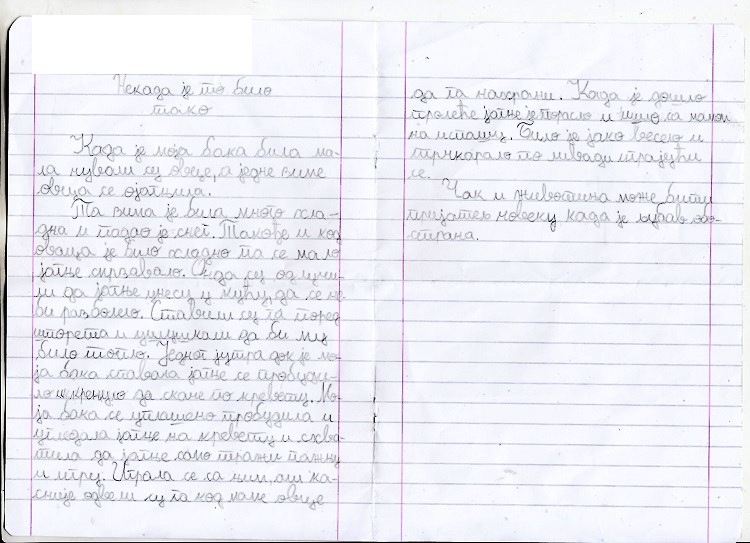 Некада је то било
тако
Када је моја бака била ма-
ла чували су овце, а једне зиме
овца се ојагњила.
Та зима је била много хла-
дна и падао је снег. Такође и код
оваца је било хладно па се мало
јагње смрзавало. Онда су одлучи-
ли да јагње унесу у кућу, да се не
би разболело. Ставили су га поред
шпорета и ушушкали да би му
било топло. Једног јутра док је мо-
ја бака спавала јагње се пробуди-
ло и кренуло да скаче по кревету. Мо-
ја бака се уплашено пробудила и
угледала јагње на кревету и схва-
тила да јагње само тражи пажњу
и игру. Играла се са њим, али ка-
сније одвели су га код маме овце
да га нахрани. Када је дошло
пролеће јагње је порасло и ишло са мамом
на испашу. Било је јако весело и
трчкарало по ливади играјући
се.
Чак и животиња може бити
пријатељ човеку када је љубав обо-
страна.